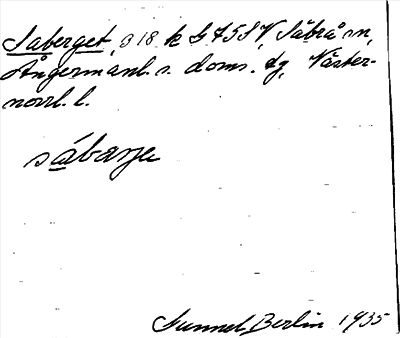 Saberget, 318 k G 45 SV, Säbrå sn,
Ångermanl. s. doms. tg, Väster-
norrl. l.
sábarje
Gunnel Berlin 1935